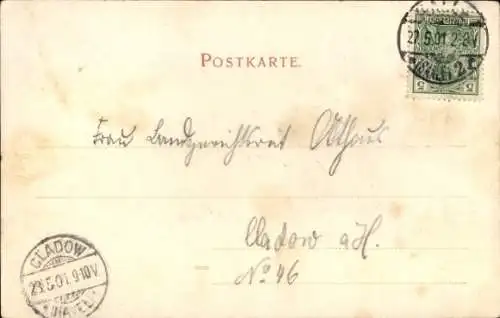 27.5.01. 2-3V
POSTKARTE.
5 5
Frau Landgerichtsrat
Cladow a/H.
No 46
CLADOW
23.5.01. 9-10V.
(HAVEL)